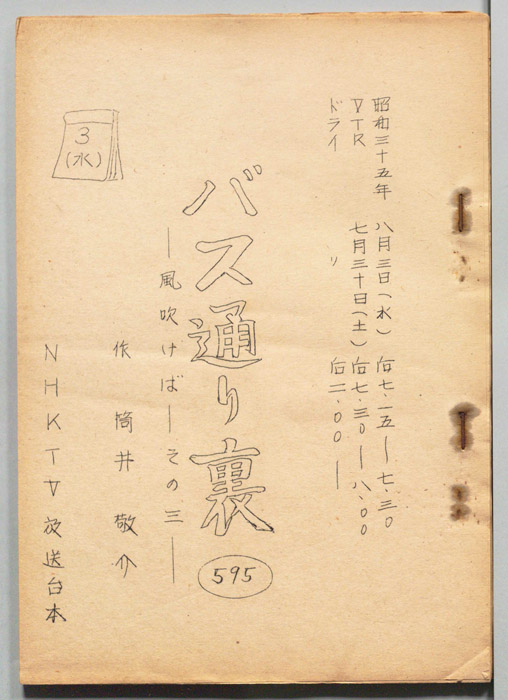 昭和三十五年 八月三日(水) 后七・一五―七・三〇
VTR 七月三十日(土) 后七・三〇―八・〇〇
ドライ 〃 后二・〇〇―
バス通り裏
595
―風吹けば―その三―
3
(水)
作 筒井敬介
NHKTV放送台本